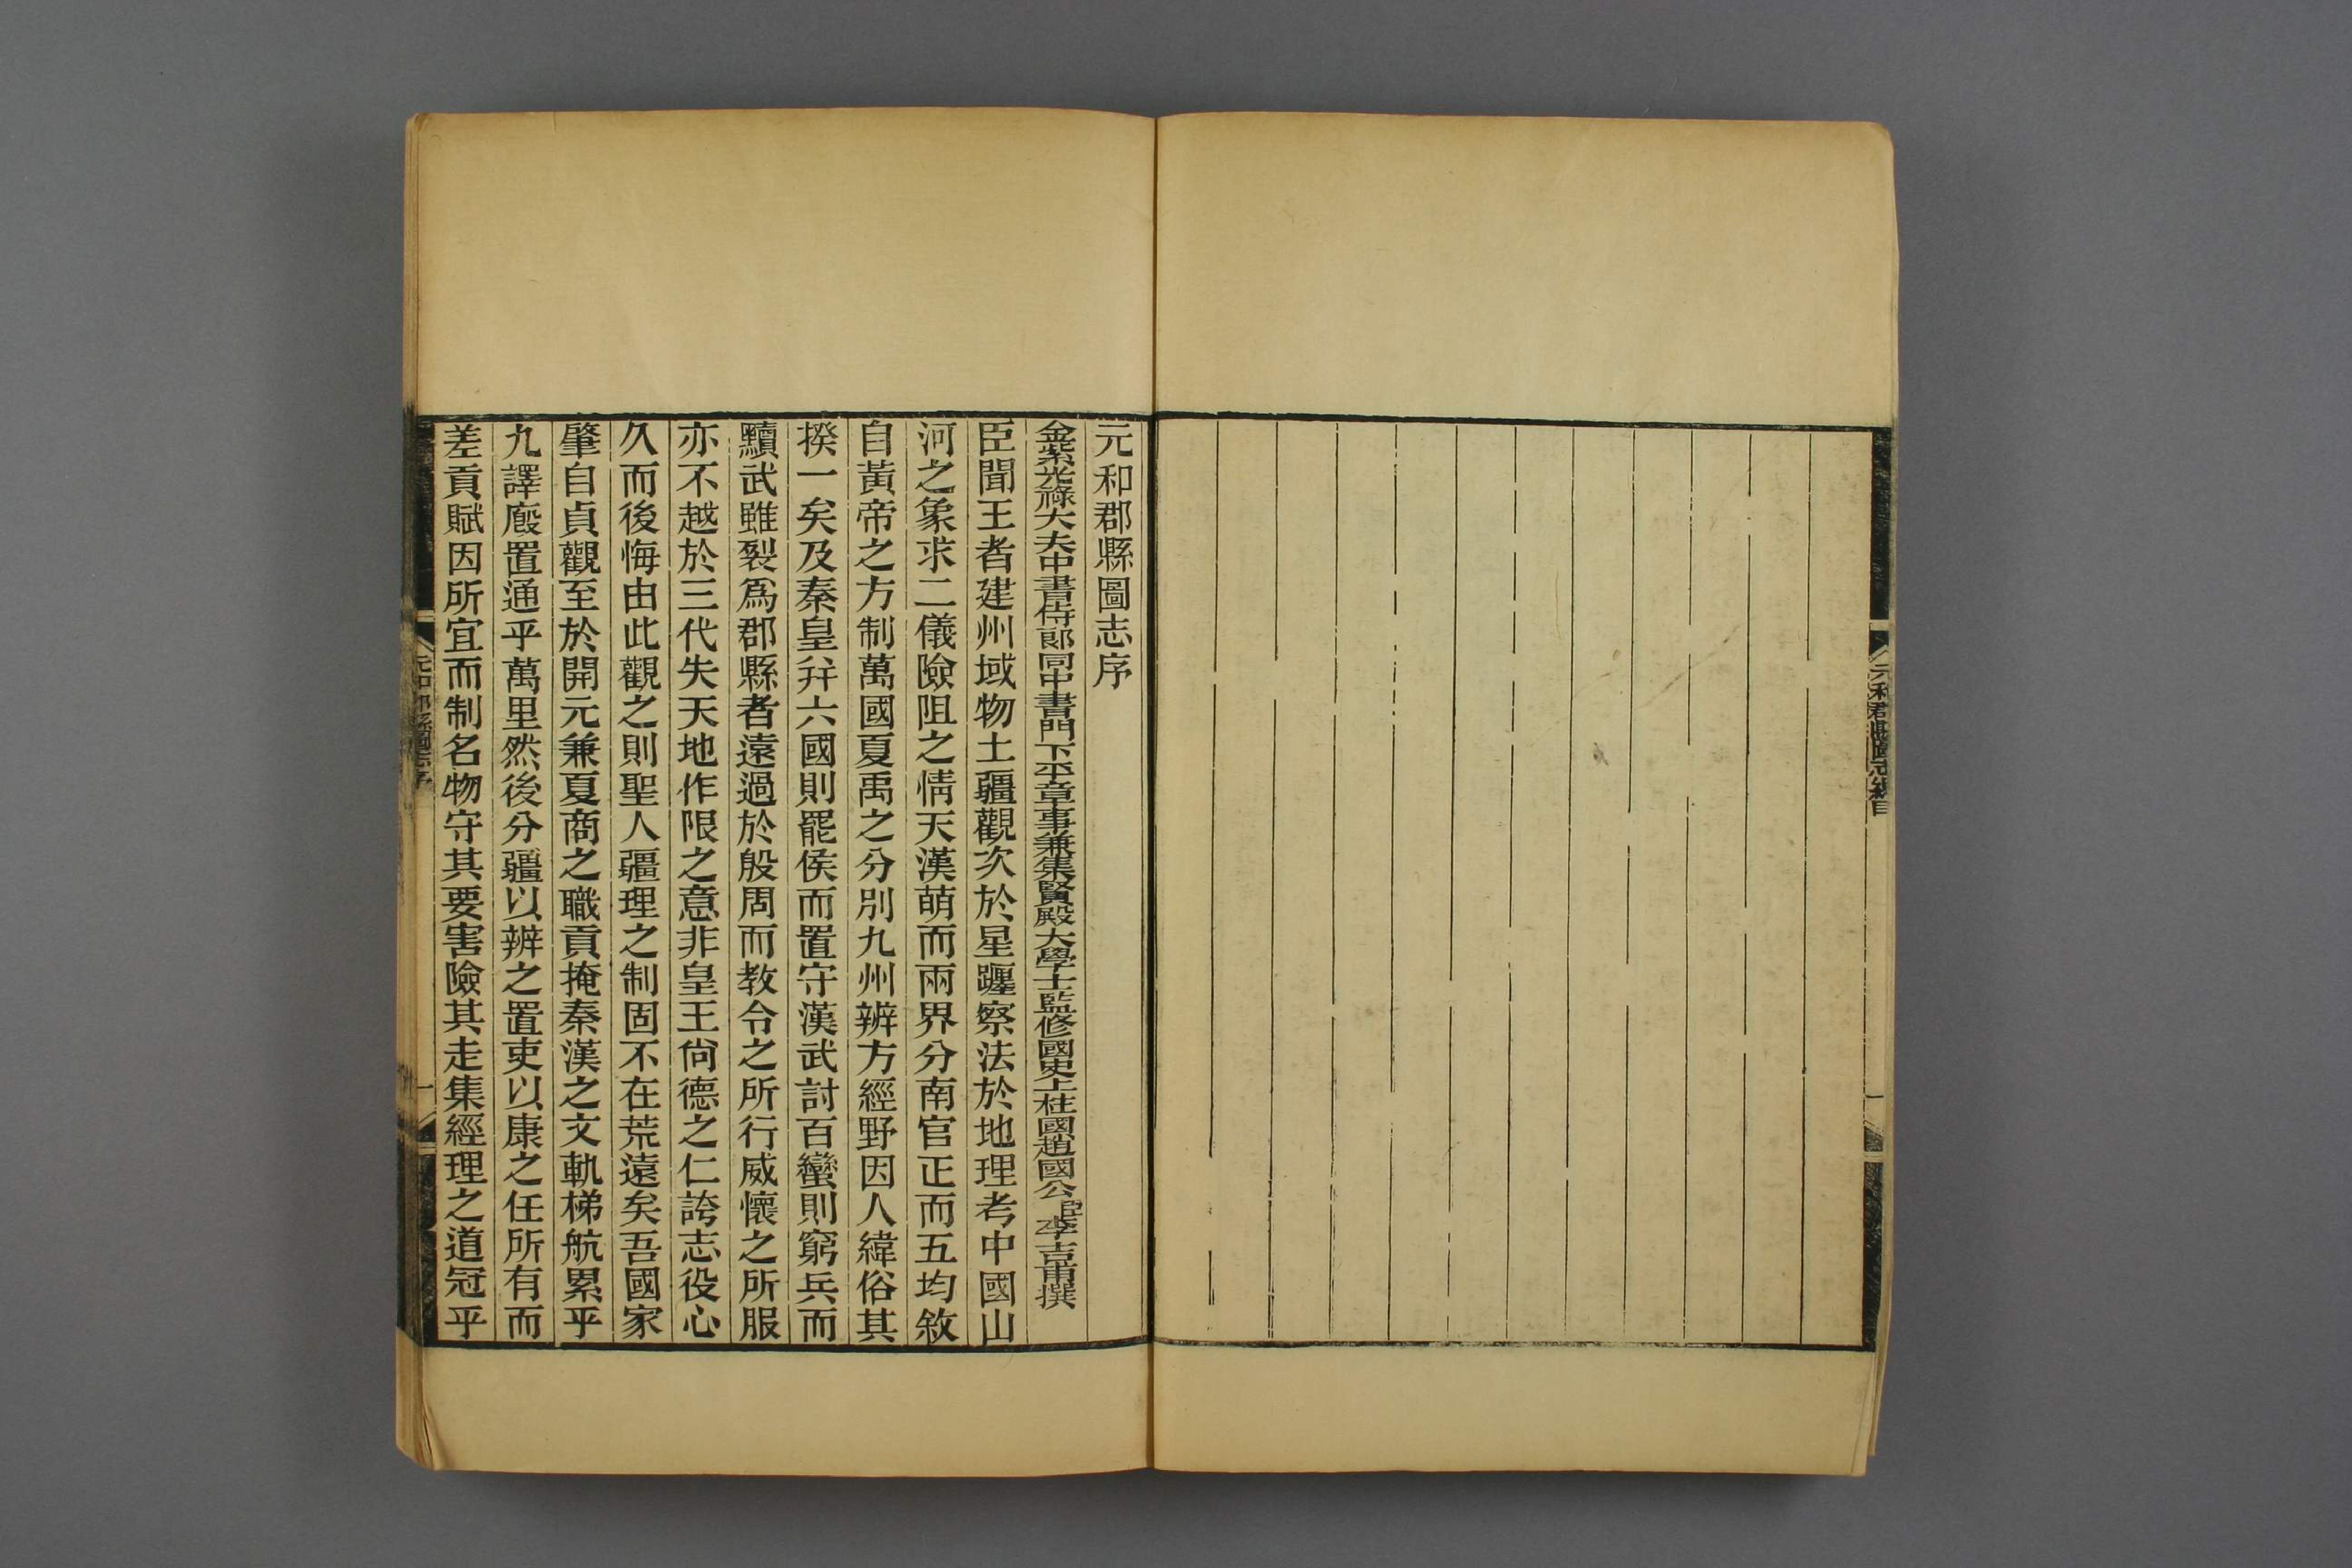 元和郡縣圖志總目
一
元和郡縣圖志序
金紫光祿大夫中書侍郞同中書門下平章事兼集賢殿大學士監修國史上柱國趙國公臣李吉甫撰
臣聞王者建州域物土疆觀次於星躔察法於地理考中國山
河之象求二儀險阻之情天漢萌而兩界分南官正而五均敘
自黃帝之方制萬國夏禹之分別九州辨方經野因人緯俗其
揆一矣及秦皇幷六國則罷侯而置守漢武討百蠻則窮兵而
黷武雖裂爲郡縣者遠過於殷周而教令之所行威懷之所服
亦不越於三代失天地作限之意非皇王尙德之仁誇志役心
久而後悔由此觀之則聖人疆理之制固不在荒遠矣吾國家
肇自貞觀至於開元兼夏商之職貢掩秦漢之文軌梯航累乎
九譯廐置通乎萬里然後分疆以辨之置吏以康之任所有而
差貢賦因所宜而制名物守其要害險其走集經理之道冠乎
元和郡縣圖志序
一